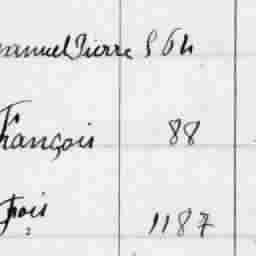 anuel Pierre 564
François 88
Frois 1187